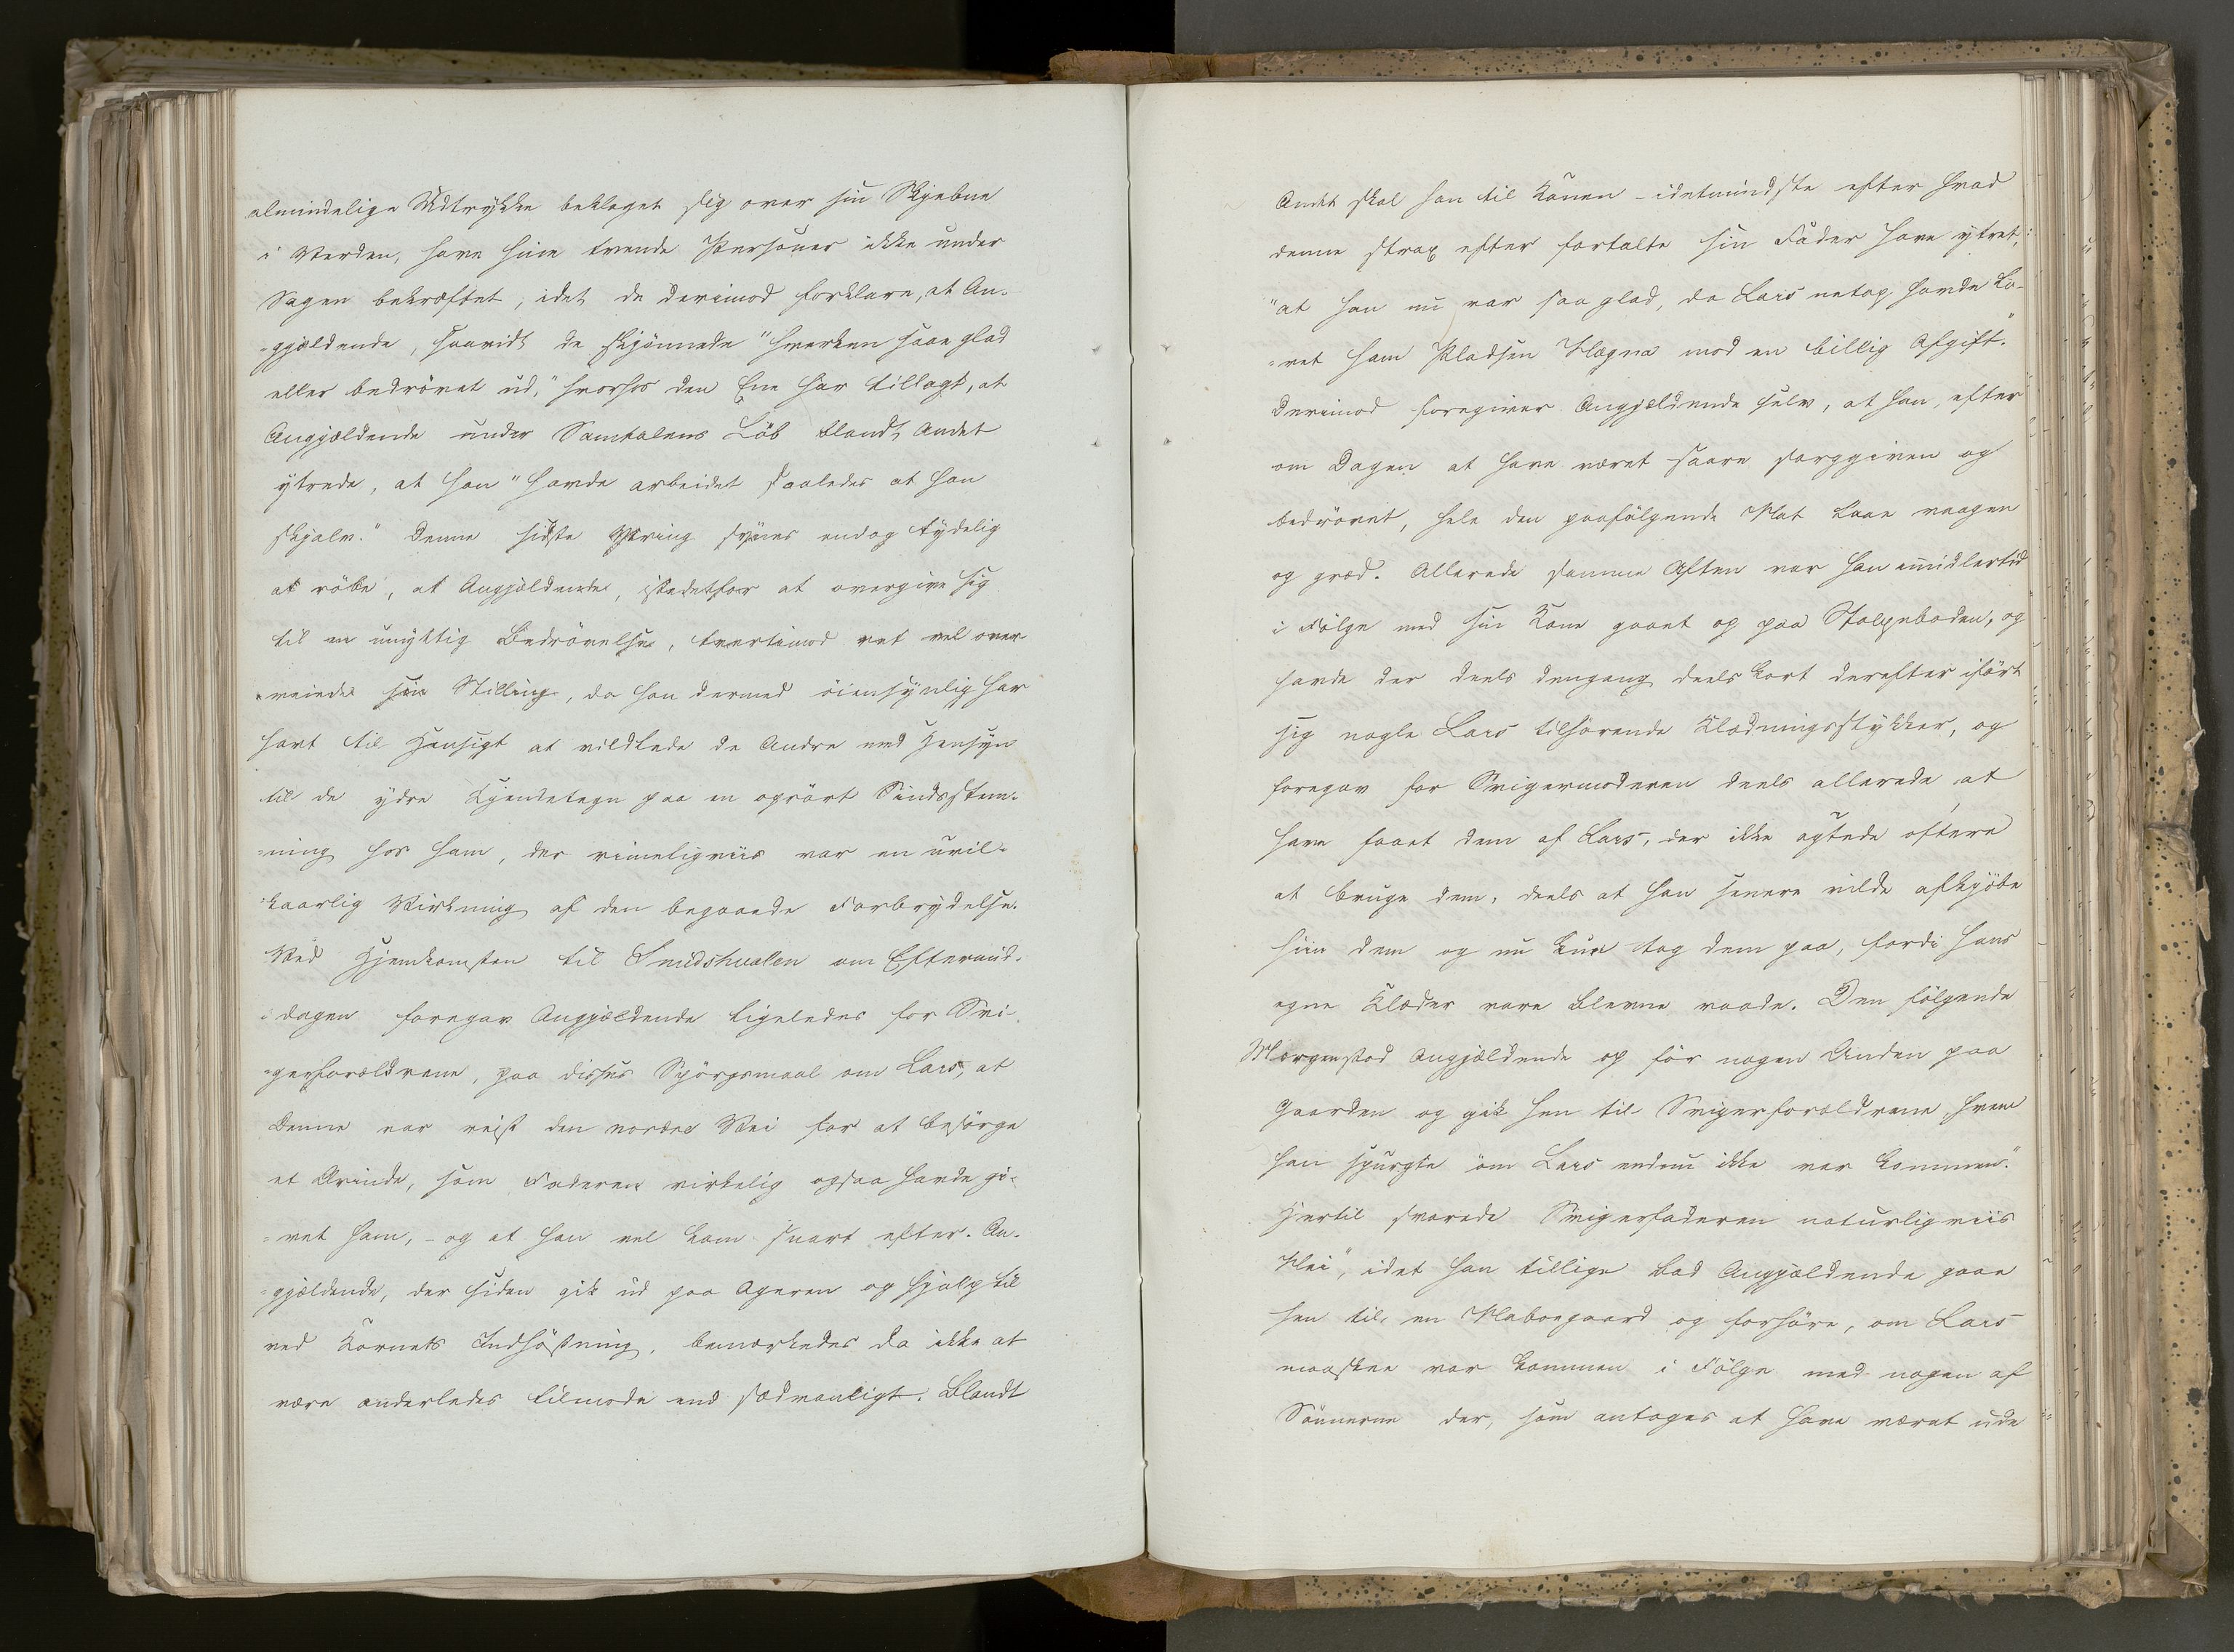 almindelige Udtrykke beklaget sig over sin Skjebne
i Verden, have hine tvende Personer ikke under
Sagen bekræftet, idet de derimod forklare, at An-
-gjældende, saavidt de skjønnede "hverken saae glad
eller bedrøvet ud," hvorhos den Ene har tillagt, at
Angjældende under Samtalens Løb blandt Andet
ytrede, at han "havde arbeidet saaledes at han
skjalv." Denne sidste Ytring synes endog tydelig
at røbe, at Angjældende, istedetfor at overgive sig
til en unyttig Bedrøvelse, tvertimod ret vel over
-veiede sin Stilling, da han dermed øiensynlig har
havt til Hensigt at vildlede de Andre med Hensyn
til de ydre Kjendetegn paa en oprørt Sindsstem-
-ning hos ham, der rimeligviis var en uvil-
-kaarlig Virkning af den begaaede Forbrydelse.
Ved Hjemkomsten til Smidshualen om Eftermid-
-dagen foregav Angjældende ligeledes for Svi-
-gerforældrene, paa disses Spørgsmaal om Lars, at
Denne var reist den nordre Vei for at besørge
et Ærinde, som Faderen virkelig ogsaa havde gi-
-vet ham, - og at han vel kom snart efter. An-
-gjældende, der siden gik ud paa Ageren og hjalp til
ved Kornets Indhøstning, bemærkedes da ikke at
være anderledes tilmode end sædvanligt. Blandt
Andet skal han til Konen - idetmindste efter hvad
denne strax efter fortalte sin Fader have ytret,
"at han nu var saa glad, da Lars netop havde lo-
-vet ham Pladsen Hægna mod en billig Afgift."
Derimod foregiver Angjældende selv, at han, efter
om Dagen at have været saare sorggiven og
bedrøvet, hele den paafølgende Nat laae vaagen
og græd. Allerede samme Aften var han imidlertid
i Følge med sin Kone gaaet op paa Stolpeboden, og
havde der deels dengang deels kort derefter iført
sig nogle Lars tilhørende Klædningsstykker, og
foregav for Svigermoderen deels allerede at
have faaet dem af Lars, der ikke agtede oftere
at bruge dem, deels at han senere vilde afkjøbe
hiin dem og nu kun tog dem paa, fordi hans
egne Klæder vare blevne vaade. Den følgende
Morgen stod Angjældende op før nogen Anden paa
Gaarden og gik hen til Svigerforældrene, hvem
han spurgte "om Lars endnu ikke var kommen."
Hertil svarede Svigerfaderen naturligviis
"Nei", idet han tillige bad Angjældende gaae
hen til en Nabogaard og forhøre, om Lars
maaskee var kommen i Følge med nogen af
Sønnerne der, som antages at have været ude